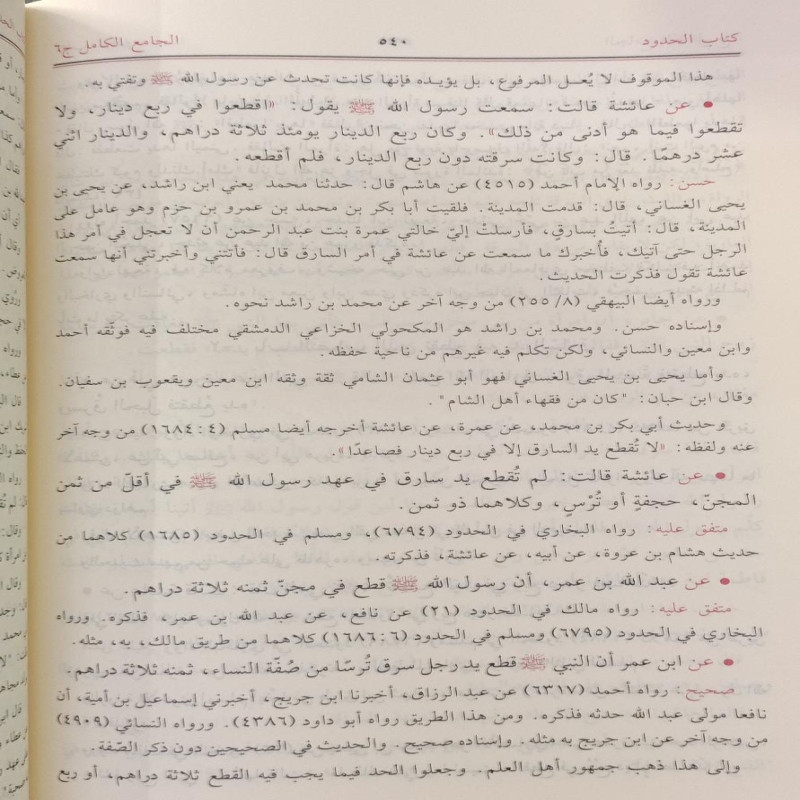 كتاب الحدود ٥٤٠ الجامع الكامل ج٦
هذا الموقوف لا يُعل المرفوع، بل يؤيده فإنها كانت تحدث عن رسول الله ﷺ وتفتي به.
• عن عائشة قالت: سمعت رسول الله ﷺ يقول: «اقطعوا في ربع دينار، ولا
تقطعوا فيما هو أدنى من ذلك». وكان ربع الدينار يومئذ ثلاثة دراهم، والدينار اثني
عشر درهمًا. قال: وكانت سرقته دون ربع الدينار، فلم أقطعه.
حسن: رواه الإمام أحمد (٤٥١٥) عن هاشم قال: حدثنا محمد يعني ابن راشد، عن يحيى بن
يحيى الغساني، قال: قدمت المدينة. فلقيت أبا بكر بن محمد بن عمرو بن حزم وهو عامل على
المدينة، قال: أتيتُ بسارقٍ، فأرسلتْ إليّ خالتي عمرة بنت عبد الرحمن أن لا تعجل في أمر هذا
الرجل حتى آتيك، فأُخبرك ما سمعت عن عائشة في أمر السارق قال: فأتتني وأخبرتني أنها سمعت
عائشة تقول فذكرت الحديث.
ورواه أيضا البيهقي (٨/ ٢٥٥) من وجه آخر عن محمد بن راشد نحوه.
وإسناده حسن. ومحمد بن راشد هو المكحولي الخزاعي الدمشقي مختلف فيه فوثّقه أحمد
وابن معين والنسائي، ولكن تكلم فيه غيرهم من ناحية حفظه.
وأما يحيى بن يحيى الغساني فهو أبو عثمان الشامي ثقة وثقه ابن معين ويعقوب بن سفيان.
وقال ابن حبان: "كان من فقهاء أهل الشام".
وحديث أبي بكر بن محمد، عن عمرة، عن عائشة أخرجه أيضا مسلم (٤: ١٦٨٤) من وجه آخر
عنه ولفظه: «لا تُقطع يد السارق إلا في ربع دينار فصاعدًا».
• عن عائشة قالت: لم تُقطع يد سارق في عهد رسول الله ﷺ في أقلّ من ثمن
المجنّ، حجفةٍ أو تُرْسٍ، وكلاهما ذو ثمن.
متفق عليه: رواه البخاري في الحدود (٦٧٩٤)، ومسلم في الحدود (١٦٨٥) كلاهما من
حديث هشام بن عروة، عن أبيه، عن عائشة، فذكرته.
• عن عبد الله بن عمر، أن رسول الله ﷺ قطع في مجنّ ثمنه ثلاثة دراهم.
متفق عليه: رواه مالك في الحدود (٢١) عن نافع، عن عبد الله بن عمر، فذكره. ورواه
البخاري في الحدود (٦٧٩٥) ومسلم في الحدود (٦: ١٦٨٦) كلاهما من طريق مالك، به، مثله.
• عن ابن عمر أن النبي ﷺ قطع يد رجل سرق تُرسًا من صُفّة النساء، ثمنه ثلاثة دراهم.
صحيح: رواه أحمد (٦٣١٧) عن عبد الرزاق، أخبرنا ابن جريج، أخبرني إسماعيل بن أمية، أن
نافعا مولى عبد الله حدثه فذكره. ومن هذا الطريق رواه أبو داود (٤٣٨٦). ورواه النسائي (٤٩٠٩)
من وجه آخر عن ابن جريج به مثله. وإسناده صحيح. والحديث في الصحيحين دون ذكر الصّفة.
وإلى هذا ذهب جمهور أهل العلم. وجعلوا الحد فيما يجب فيه القطع ثلاثة دراهم، أو ربع